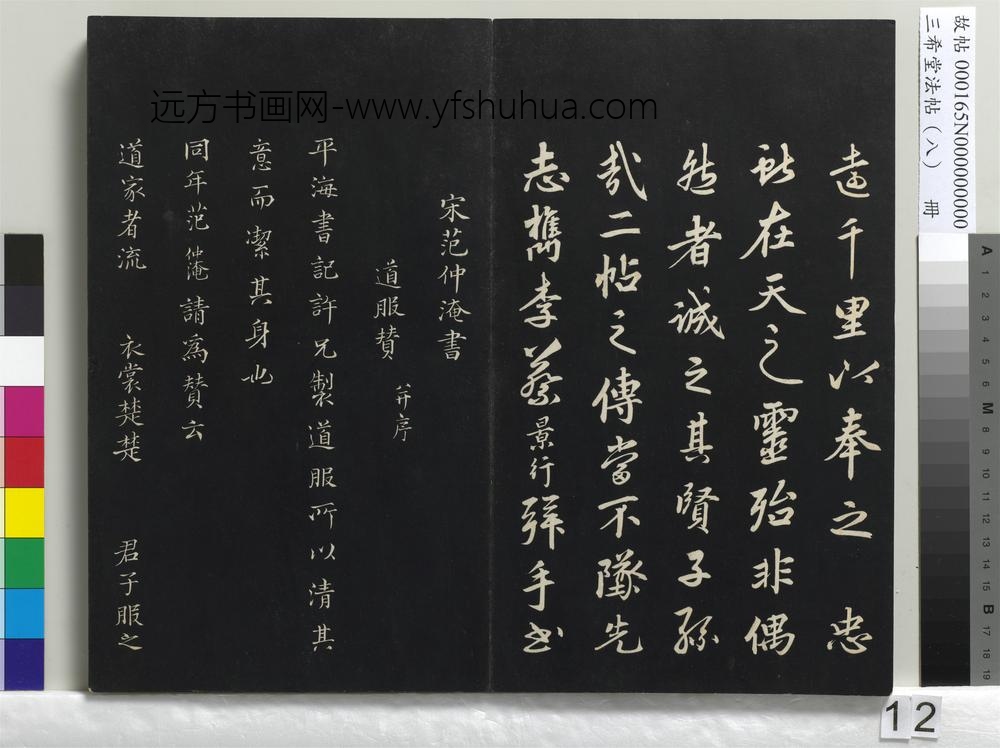 远方书画网-www.yfshuhua.com
故帖 000165N000000000
三希堂法帖（八） 冊
遠千里以奉之 忠
獻在天之靈殆非偶
然者誠之其賢子孫
哉二帖之傳當不墜先
志檇李蔡景行拜手書
宋范仲淹書
道服贊 并序
平海書記許兄製道服所以清其
意而潔其身也
同年范仲淹請為贊云
道家者流 衣裳楚楚 君子服之
A 1 2 3 4 5 6 M 8 9 10 11 12 13 14 15 B 17 18 19
12